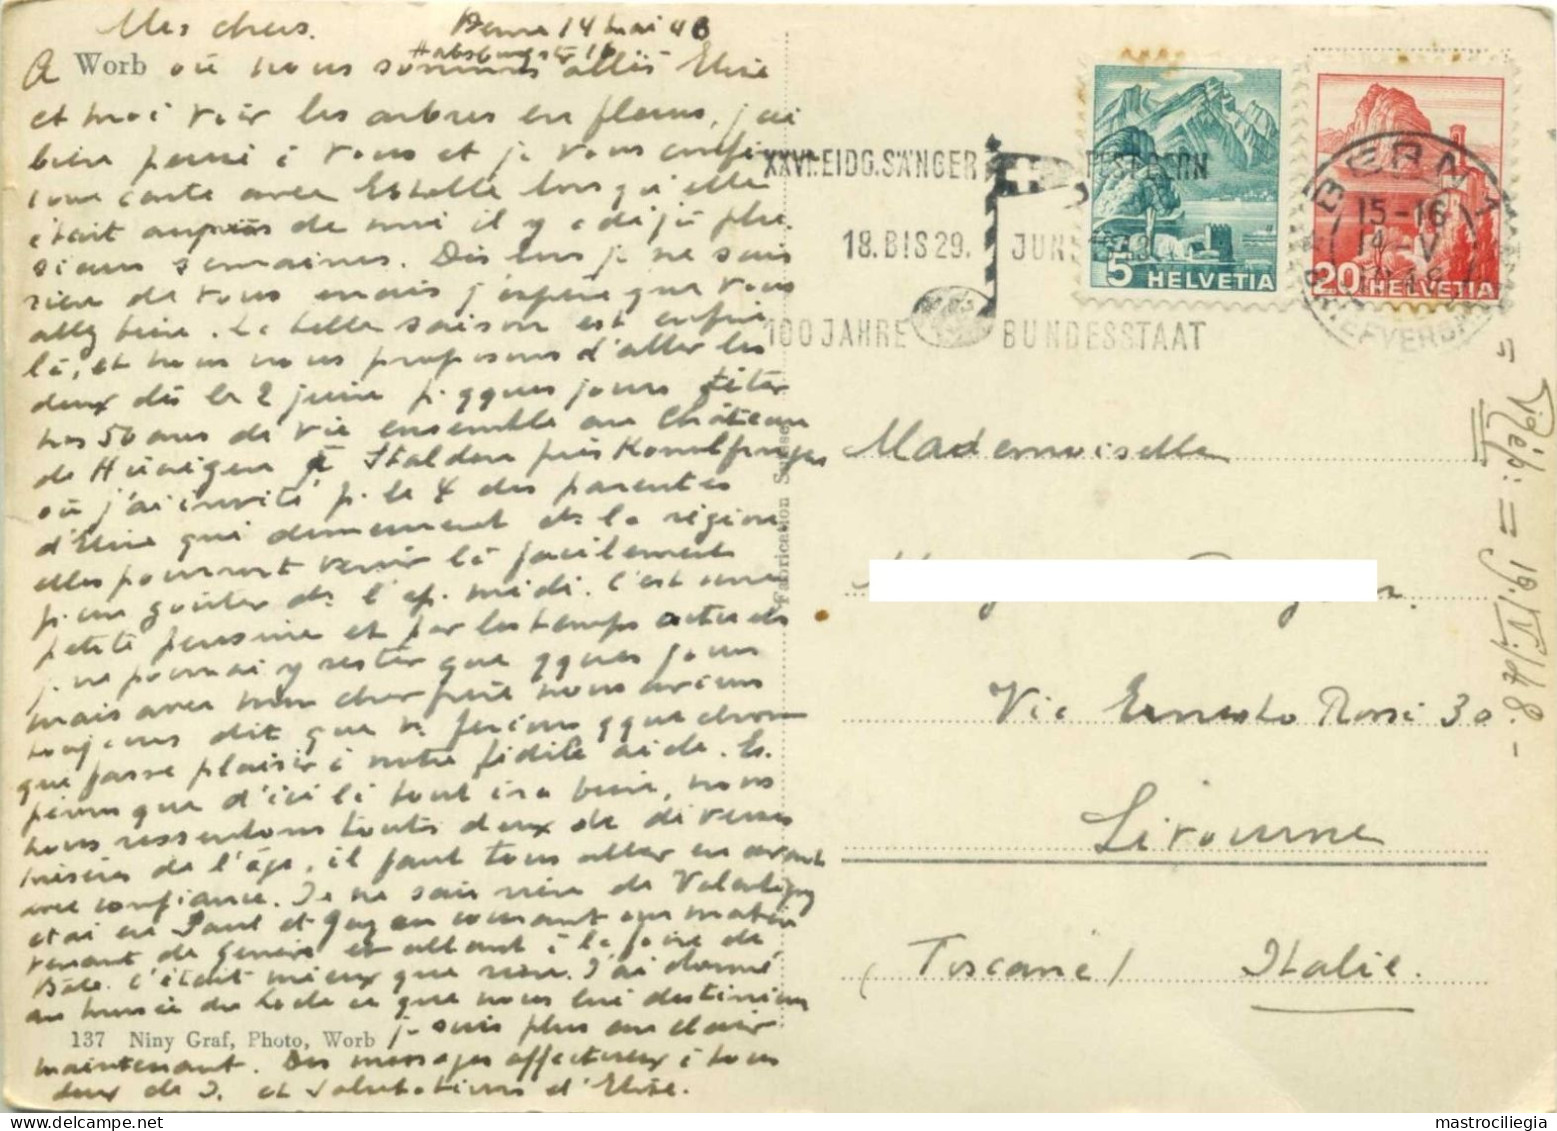 Mes chers. Berne 14 mai 48
Habsburgstr. 16
A Worb où nous sommes allés Elise
et moi voir les arbres en fleurs, j'ai
bien pensé à vous et je vous
une carte avec Estelle lorsqu'elle
était auprès de moi il y a déjà plu-
sieurs semaines. Dès lors je ne sais
rien de vous mais j'espère que vous
allez bien. La belle saison est enfin
là, et nous nous proposons d'aller les
deux dès le 2 juin p. qques jours fêter
nos 50 ans de vie ensemble au Château
de Hünigen à Stalden près Konolfingen
où j'ai invité p. le 4 des parentes
d'Elise qui demeurent ds. la région
elles pourront venir là facilement
p. un goûter ds. l'ap. midi. C'est une
petite pension et par les temps actuels
je ne pourrai y rester que qques jours
mais avec mon cher frère nous avions
toujours dit que n. ferions qque chose
que fasse plaisir à notre fidèle aide. Es-
pérons que d'ici là tout ira bien, nous
nous ressentons toutes deux de diverses
misères de l'âge, il faut tous aller en avant
avec confiance. Je ne sais rien de Valentigney
et ai vu Paul et Guy en courant un matin
venant de Genève et allant à la foire de
Bâle. C'était mieux que rien. J'ai donné
au musée du Locle ce que nous lui destinions
je suis plus au clair
maintenant. Des messages affectueux à vous
deux de J. et salutations d'Elise.
137 Niny Graf, Photo, Worb
Fabrication Suisse
XXVI. EIDG. SÄNGERFEST BERN
18. BIS 29. JUNI 1948
100 JAHRE BUNDESSTAAT
5 HELVETIA
20 HELVETIA
BERN 1
15-16
14-V
1948
BRIEFVERSAND
Mademoiselle
Via Ernesto Rossi 30
Livourne
(Toscane) Italie.
= Rép: = 19.VI/48.-
mastrociliegia